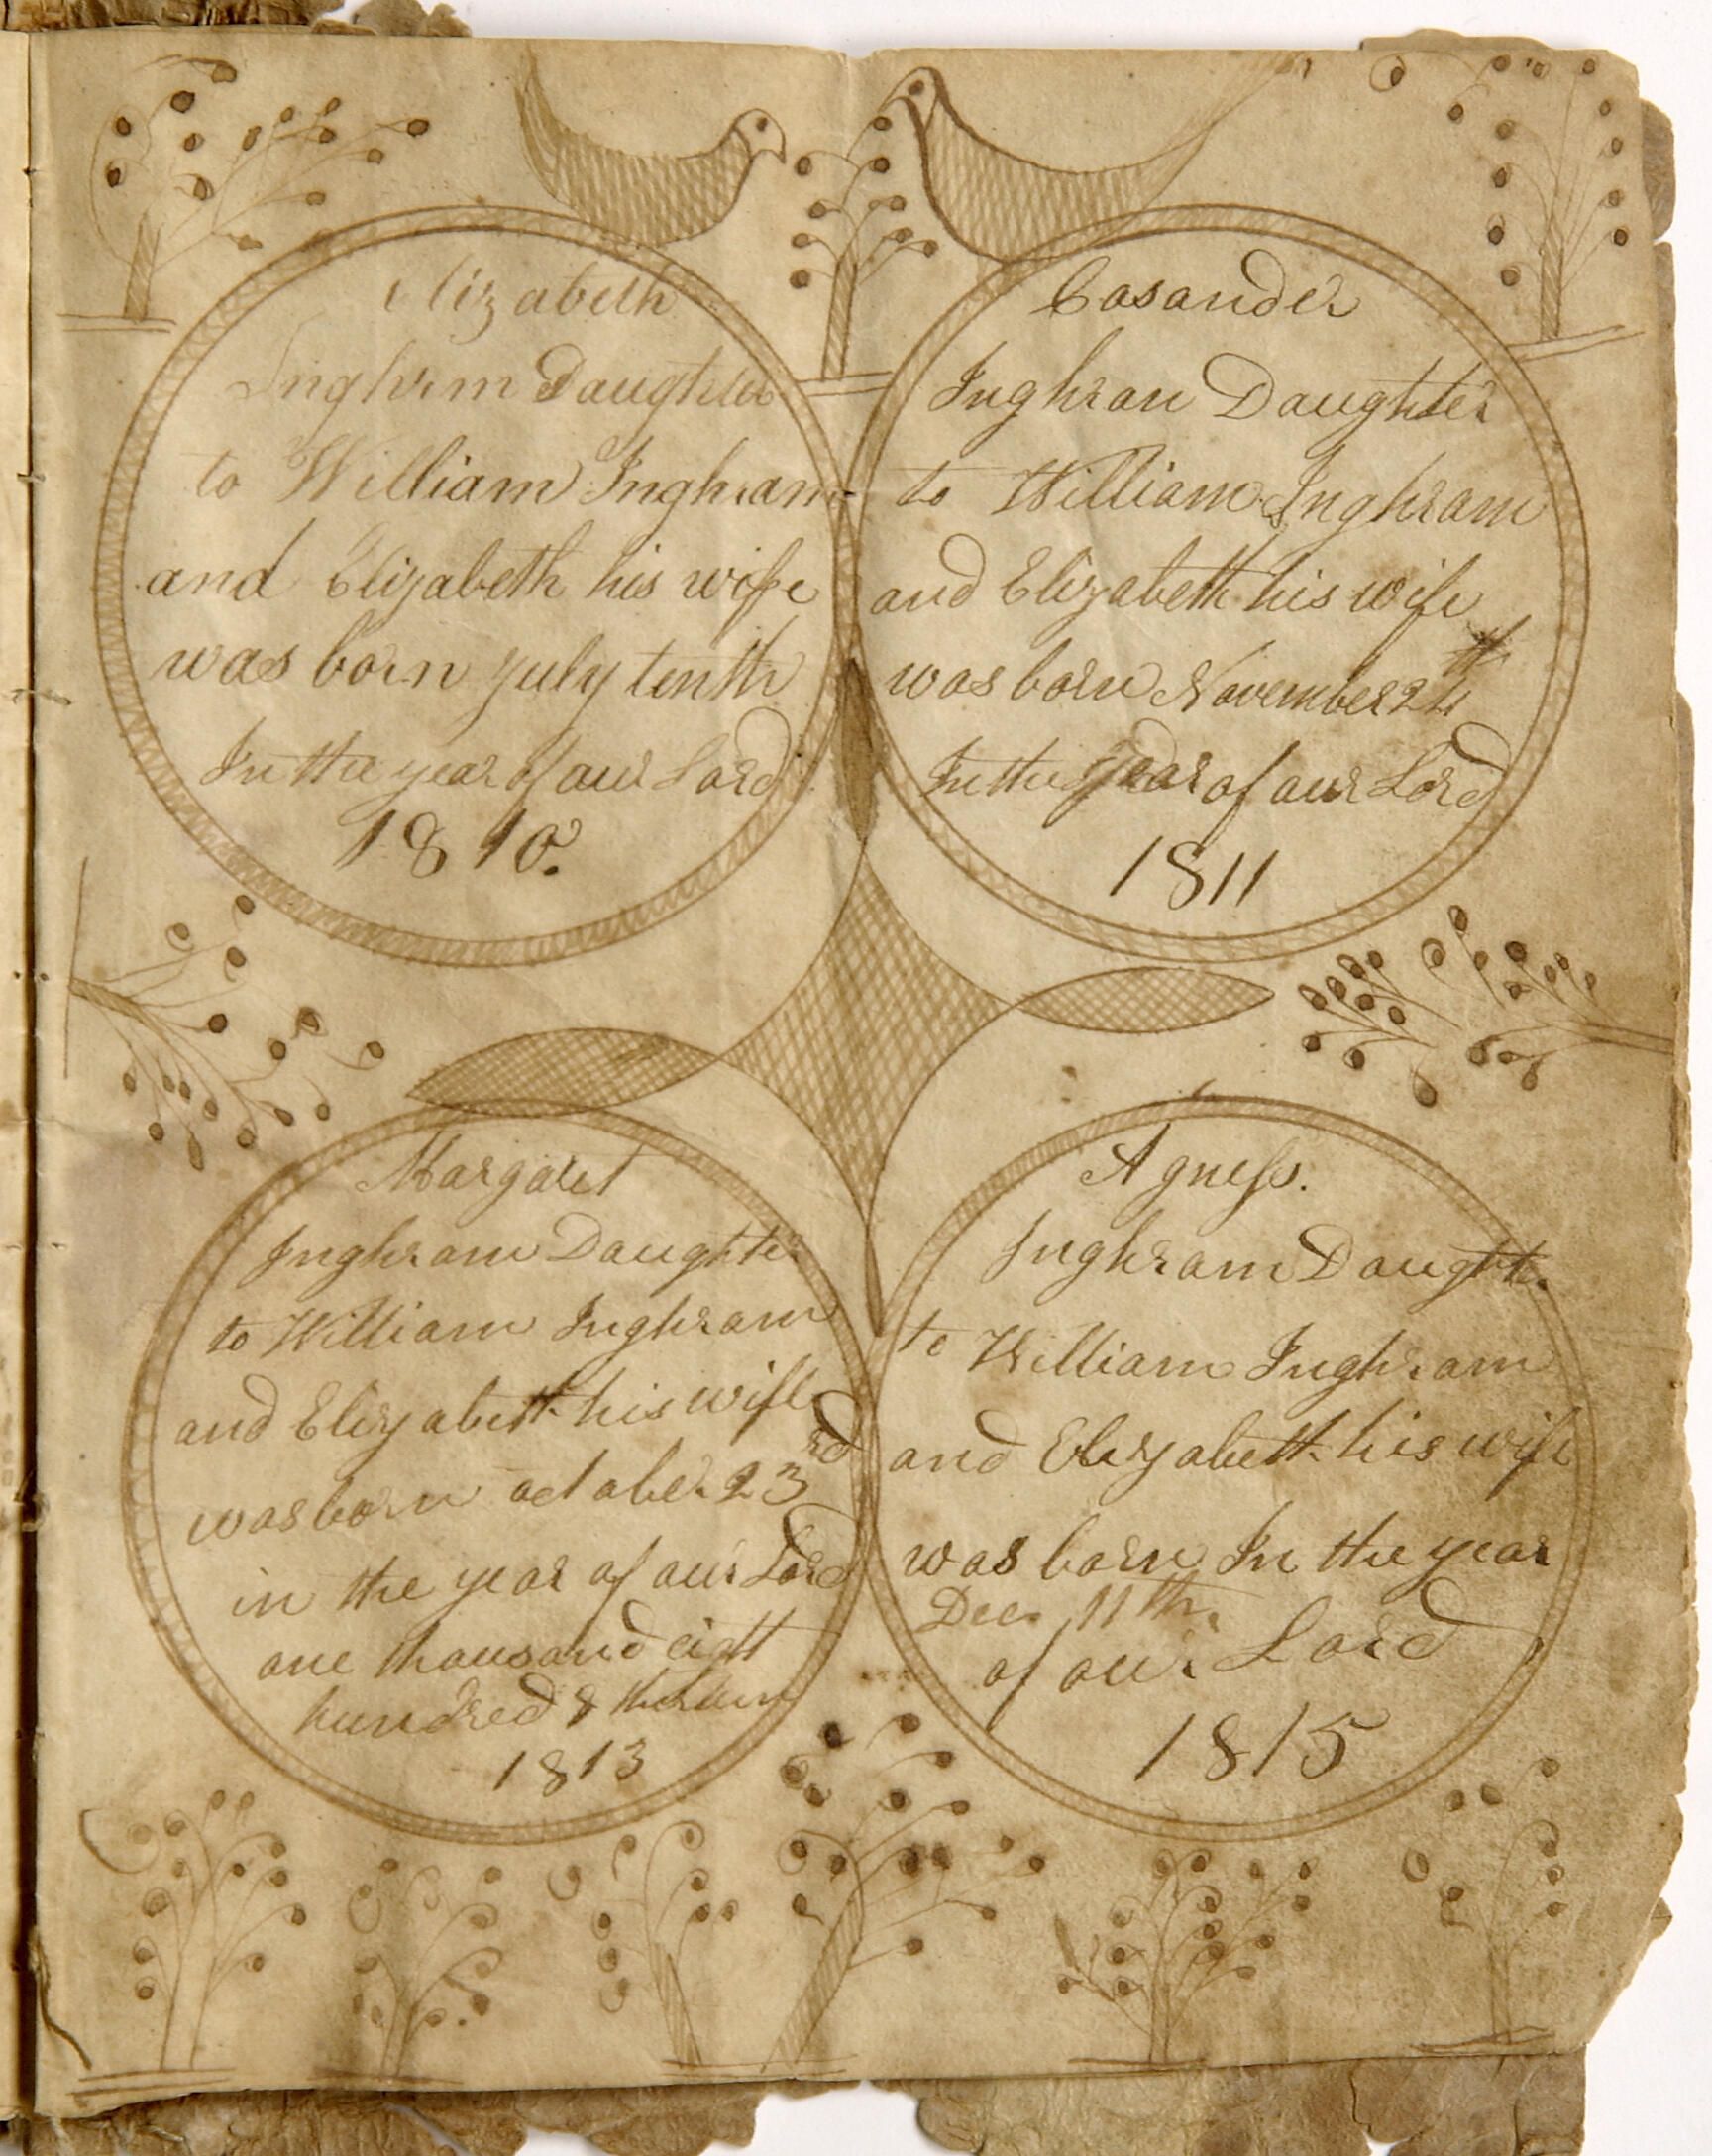 Elizabeth
Inghram Daughter
to William Inghram
and Elizabeth his wife
was born July tenth
In the year of our Lord
1810.
Casander
Inghram Daughter
to William Inghram
and Elizabeth his wife
was born November 24th
In the year of our Lord
1811
Margaret
Inghram Daughter
to William Inghram
and Elizabeth his wife
was born october 23rd
in the year of our Lord
one thousand eight
hundred & thirteen
1813
Agness.
Inghram Daught
to William Inghram
and Elizabeth his wife
was born In the year
Dec. 11th.
of our Lord
1815